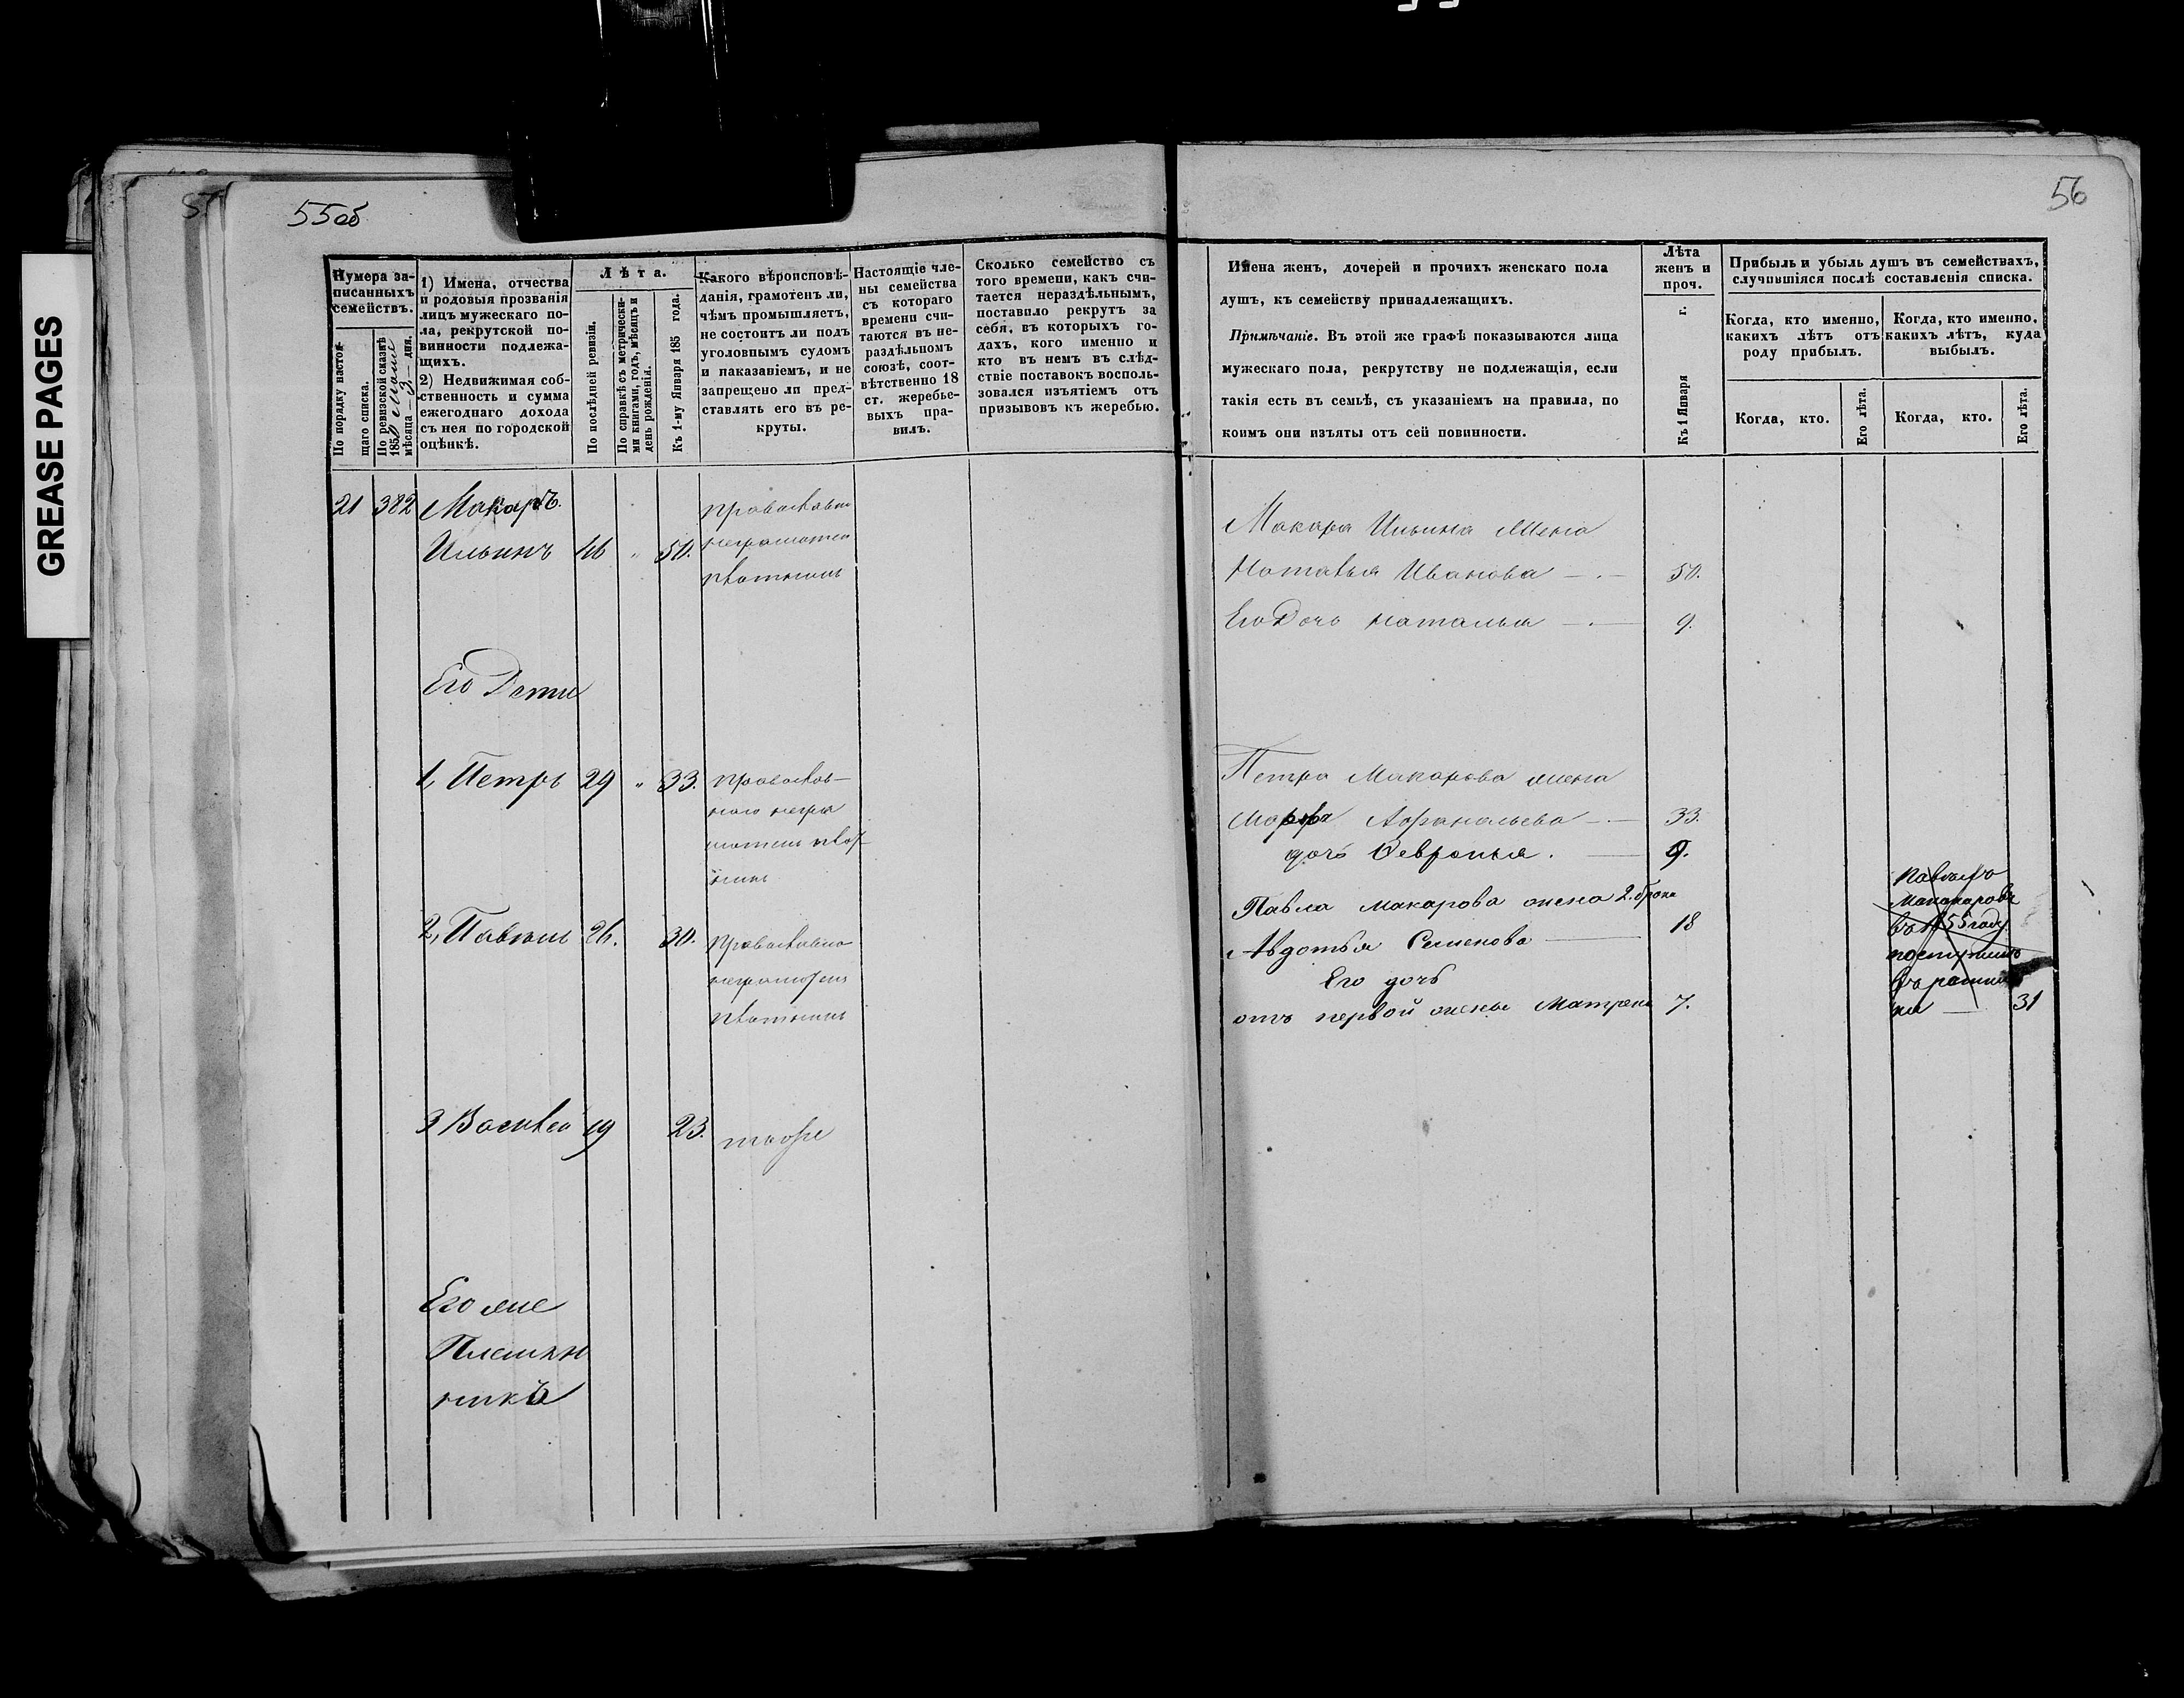 GREASE PAGES
55об
56
Нумера записанныхъ семействъ.
По порядку настоящаго списка.
По ревизской сказкѣ 1850 мѣсяца 3 дня.
1) Имена, отчества
и родовыя прозванія
лицъ мужескаго по-
ла, рекрутской по-
винности подлежа-
щихъ.
2) Недвижимая соб-
ственность и сумма
ежегоднаго дохода
съ нея по городской
оцѣнкѣ.
Лѣта.
По послѣдней ревизіи.
По справкѣ съ метрически-
ми книгами, годъ, мѣсяцъ и
день рожденія.
Къ 1-му Января 185 года.
Какого вѣроисповѣ-
данія, грамотенъ ли,
чѣмъ промышляетъ,
не состоитъ ли подъ
уголовнымъ судомъ
и наказаніемъ, и не
запрещено ли пред-
ставлять его въ ре-
круты.
Настоящіе чле-
ны семейства
съ котораго
времени счи-
таются въ не-
раздѣльномъ
союзѣ, соот-
вѣтственно 18
ст. жеребье-
выхъ пра-
вилъ.
Сколько семейство съ
того времени, какъ счи-
тается нераздѣльнымъ,
поставило рекрутъ за
себя, въ которыхъ го-
дахъ, кого именно и
кто въ немъ въ слѣд-
ствіе поставокъ восполь-
зовался изъятіемъ отъ
призывовъ къ жеребью.
Имена женъ, дочерей и прочихъ женскаго пола
душъ, къ семейству принадлежащихъ.
Примѣчаніе. Въ этой же графѣ показываются лица
мужескаго пола, рекрутству не подлежащія, если
такія есть въ семьѣ, съ указаніемъ на правила, по
коимъ они изъяты отъ сей повинности.
Лѣта
женъ и
проч.
Къ 1 Января г.
Прибыль и убыль душъ въ семействахъ,
случившіяся послѣ составленія списка.
Когда, кто именно,
какихъ лѣтъ отъ
роду прибылъ.
Когда, кто именно,
какихъ лѣтъ, куда
выбылъ.
Когда, кто.
Его лѣта.
Когда, кто.
Его лѣта.
21 382 Макаръ
Ильинъ 46 " 50.
Его Дети
1, Петръ 29 " 33.
2, Павелъ 26. 30.
3 Василей 19 23. тоже
Его же
Племян
никъ
Макара Ильина жена
Наталья Иванова 50.
Его Дочь Наталья 9.
Петра Макарова жена
Марфа 33.
дочь Февронья. 9.
Павла Макарова жена 2. брака
Авдотья Семенова 18
Его дочь
отъ первой жены Матрена 7.
Павелъ
Макаровъ
въ 1855 году
поступилъ
31